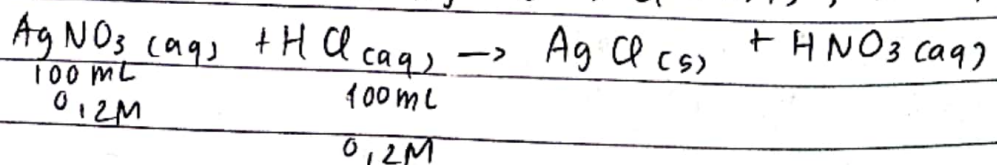 AgNO3 (aq) + HCl (aq) → AgCl (s) + HNO3 (aq)
100 mL 100 mL
0,2M
0,2M